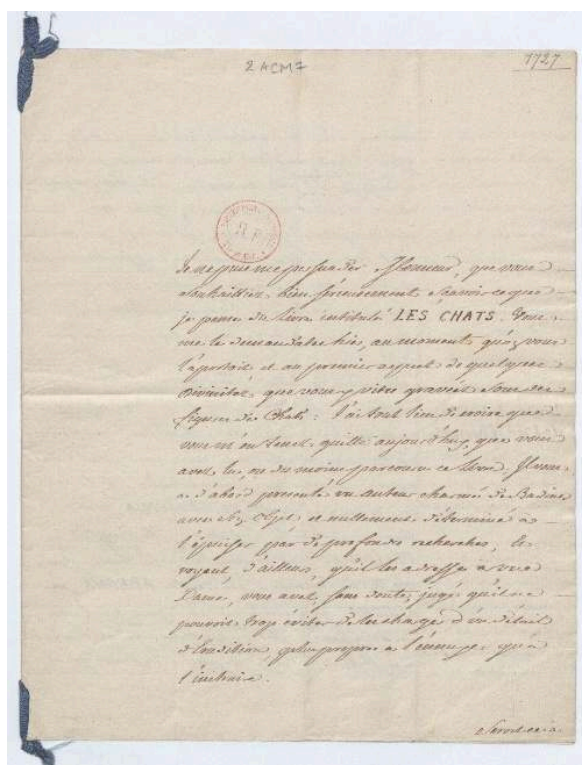 2 ACM 7
1727
Je ne puis me persuader Monsieur, que vous
souhaittiez bien serieusement sçavoir ce que
je pense du Livre intitulé LES CHATS. Vous
me le demandates hier, au moment qu'on vous
l'aportoit et au premier aspect de quelques
Divinités, que vous y vites gravées sous des
figures de Chats: j'ai tout lieu de croire que
vous m'en tenez quitte aujourd'huy, que vous
avez lu, ou du moins parcouru ce Livre. Il vous
a d'abord presenté un Auteur charmé de Badiner
avec son Objet, et nullement déterminé à
l'épuiser par de profondes recherches, Et
voyant, d'ailleurs, qu'il les adresse a une
Dame, vous avez, sans doute, jugé qu'il ne
pouvoit trop éviter de les charger d'un détail
d'Erudition, plus propre a l'ennuyer qu'a
l'instruire.